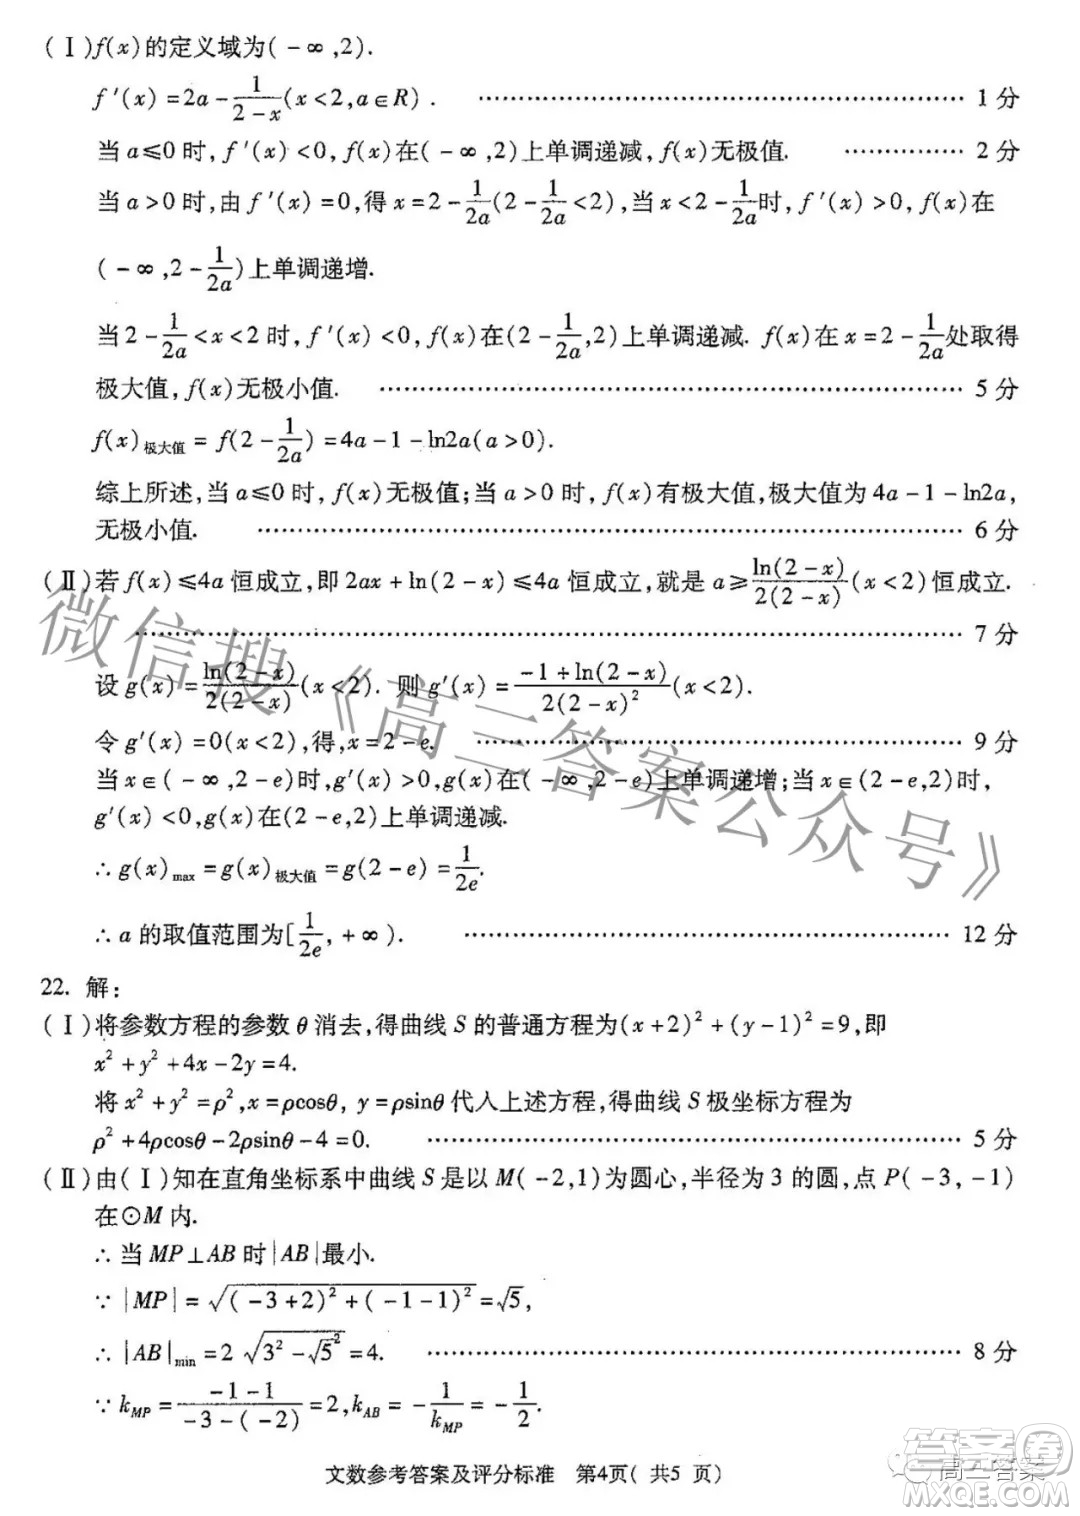 (Ⅰ)f(x)的定义域为(-∞,2).
f'(x)=2a-1/(2-x)(x<2,a∈R). …… 1分
当a≤0时,f'(x)<0,f(x)在(-∞,2)上单调递减,f(x)无极值. …… 2分
当a>0时,由f'(x)=0,得x=2-1/2a(2-1/2a<2),当x<2-1/2a时,f'(x)>0,f(x)在
(-∞,2-1/2a)上单调递增.
当2-1/2a<x<2时,f'(x)<0,f(x)在(2-1/2a,2)上单调递减. f(x)在x=2-1/2a处取得
极大值,f(x)无极小值. …… 5分
f(x)极大值=f(2-1/2a)=4a-1-ln2a(a>0).
综上所述,当a≤0时,f(x)无极值;当a>0时,f(x)有极大值,极大值为4a-1-ln2a,
无极小值. …… 6分
(Ⅱ)若f(x)≤4a恒成立,即2ax+ln(2-x)≤4a恒成立,就是a≥ln(2-x)/2(2-x)(x<2)恒成立.
…… 7分
设g(x)=ln(2-x)/2(2-x)(x<2). 则g'(x)=(-1+ln(2-x))/2(2-x)²(x<2).
令g'(x)=0(x<2),得,x=2-e. …… 9分
当x∈(-∞,2-e)时,g'(x)>0,g(x)在(-∞,2-e)上单调递增;当x∈(2-e,2)时,
g'(x)<0,g(x)在(2-e,2)上单调递减.
∴g(x)max=g(x)极大值=g(2-e)=1/2e.
∴a的取值范围为[1/2e,+∞). …… 12分
22. 解:
(Ⅰ)将参数方程的参数θ消去,得曲线S的普通方程为(x+2)²+(y-1)²=9,即
x²+y²+4x-2y=4.
将x²+y²=ρ²,x=ρcosθ, y=ρsinθ代入上述方程,得曲线S极坐标方程为
ρ²+4ρcosθ-2ρsinθ-4=0. …… 5分
(Ⅱ)由(Ⅰ)知在直角坐标系中曲线S是以M(-2,1)为圆心,半径为3的圆,点P(-3,-1)
在⊙M内.
∴当MP⊥AB时|AB|最小.
∵|MP|=√((-3+2)²+(-1-1)²)=√5,
∴|AB|min=2√(3²-√5²)=4. …… 8分
∵kMP=(-1-1)/(-3-(-2))=2,kAB=-1/kMP=-1/2.
文数参考答案及评分标准 第4页( 共5 页)
微信搜《高三答案公众号》
答案卷
高三答案
MXQE.COM